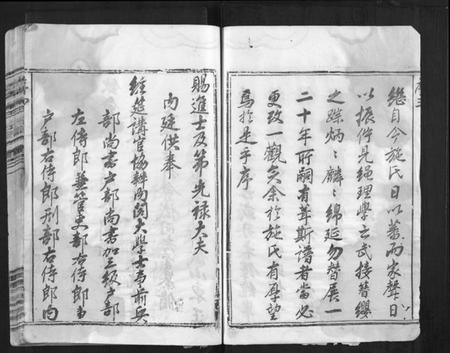 繼自今施氏日以蕃而家聲日
以振件見繩理學之武接簪纓
之蹤炳炳麟麟綿延勿替展一
二十年所嗣有葺斯譜者當必
更改一觀矣余於施氏有厚望
焉於是乎序
賜進士及第光祿大夫
内廷供奉
經筵講官協辦内閣大學士事前兵
部尚書户部尚書加三級吏部
左侍郎兼管吏部右侍郎事
户部右侍郎刑部右侍郎内